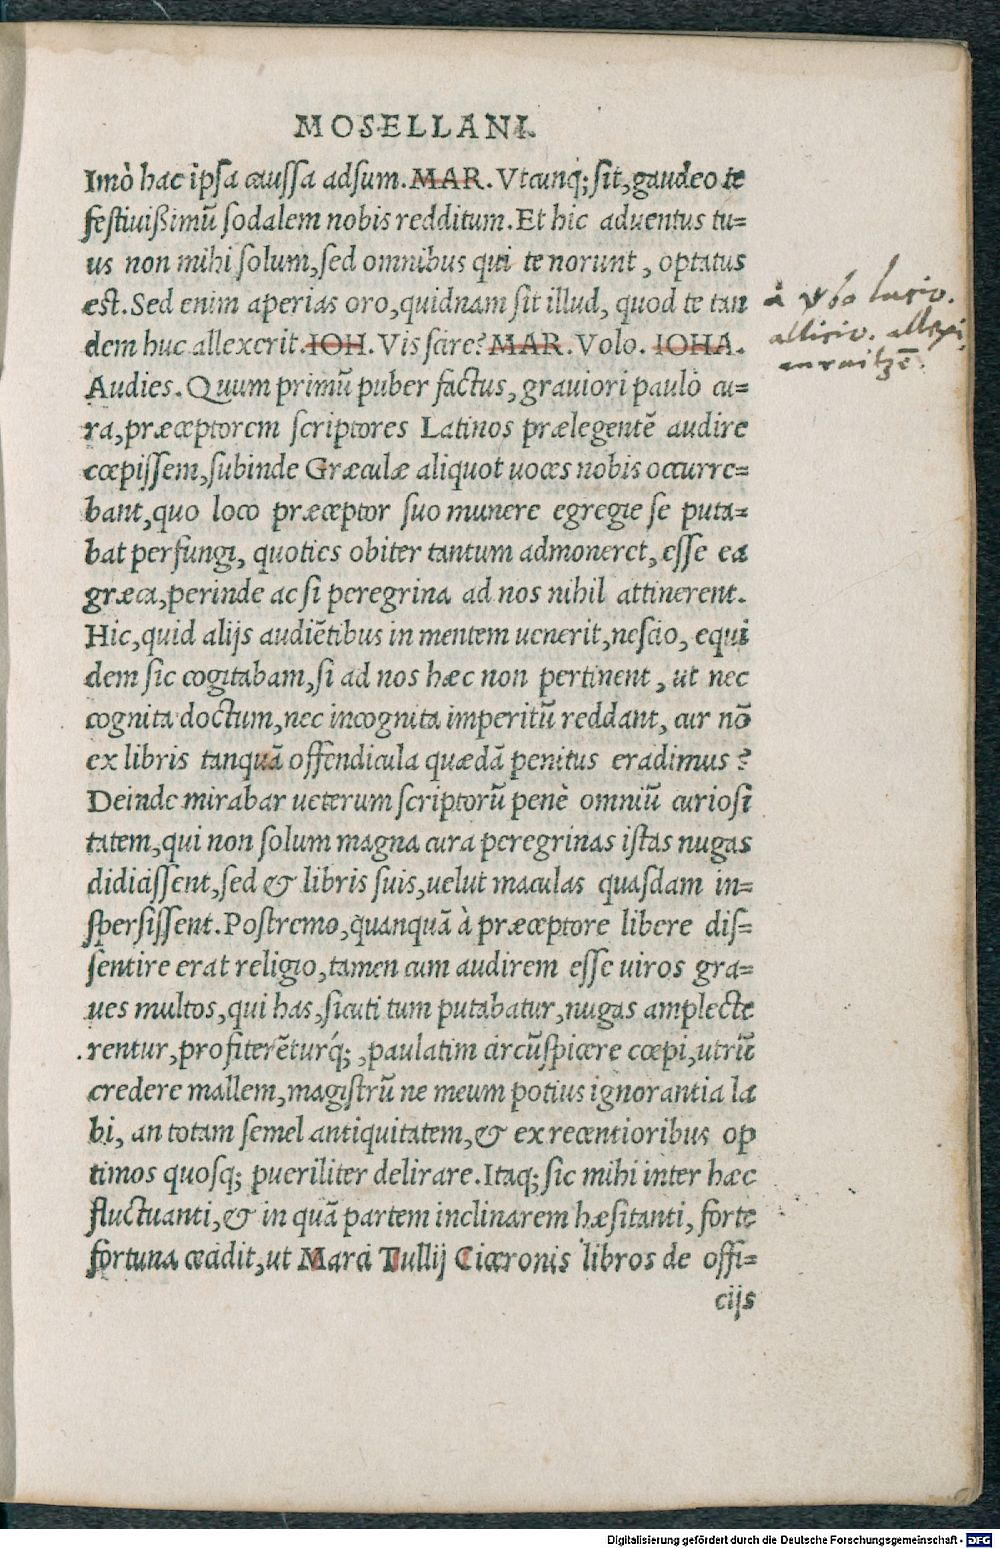 MOSELLANI.
Imò hac ipsa caussa adsum. MAR. Vtcunq; sit, gaudeo te
festiuißimū sodalem nobis redditum. Et hic aduentus tu=
us non mihi solum, sed omnibus qui te norunt, optatus
est. Sed enim aperias oro, quidnam sit illud, quod te tan
dem huc allexerit. IOH. Vis scire? MAR. Volo. IOHA.
Audies. Quum primū puber factus, grauiori paulò cu=
ra, præceptorem scriptores Latinos prælegentē audire
cœpissem, subinde Græculæ aliquot uoces nobis occurre=
bant, quo loco præceptor suo munere egregie se puta=
bat perfungi, quoties obiter tantum admoneret, esse ea
græca, perinde ac si peregrina ad nos nihil attinerent.
Hic, quid alijs audiētibus in mentem uenerit, nescio, equi
dem sic cogitabam, si ad nos hæc non pertinent, ut nec
cognita doctum, nec incognita imperitū reddant, cur nō
ex libris tanquā offendicula quædā penitus eradimus?
Deinde mirabar ueterum scriptorū penè omniū curiosi
tatem, qui non solum magna cura peregrinas istas nugas
didicissent, sed & libris suis, uelut maculas quasdam in=
spersissent. Postremo, quanquā à præceptore libere dis=
sentire erat religio, tamen cum audirem esse uiros gra=
ues multos, qui has, sicuti tum putabatur, nugas amplecte
rentur, profiterēturq́;, paulatim circūspicere cœpi, utrū
credere mallem, magistrū ne meum potius ignorantia la
bi, an totam semel antiquitatem, & ex recentioribus op
timos quosq; pueriliter delirare. Itaq; sic mihi inter hæc
fluctuanti, & in quā partem inclinarem hæsitanti, forte
fortuna cecidit, ut Marci Tullij Ciceronis libros de offi=
cijs
à lacio.
allicio. allexi
Digitalisierung gefördert durch die Deutsche Forschungsgemeinschaft - DFG